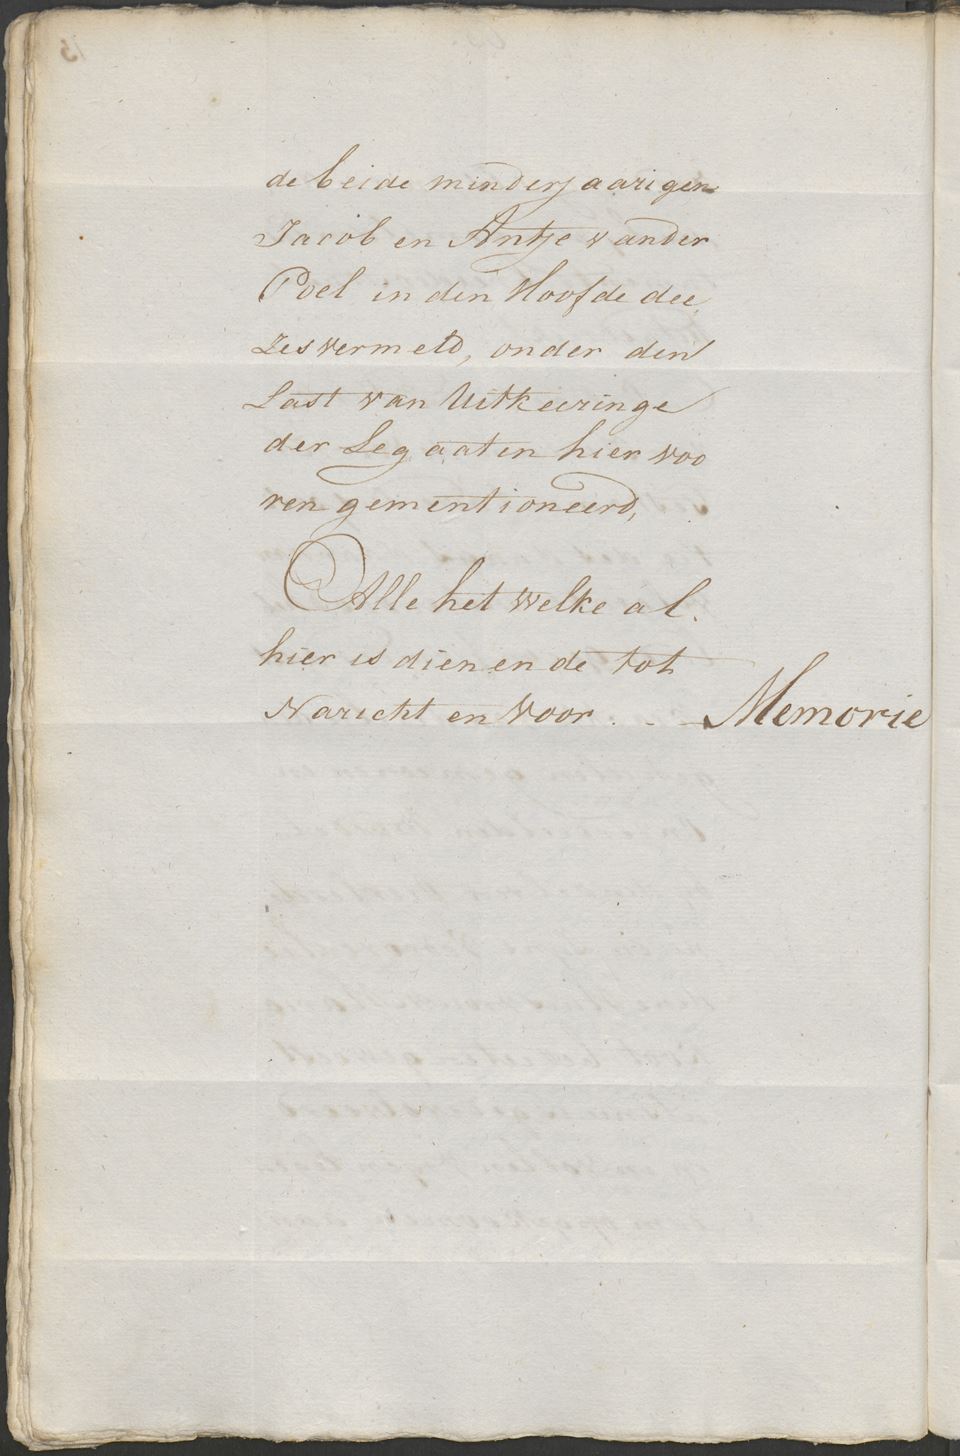 de beide minderjaarigen
Jacob en Antje vander
Poel in den Hoofde dee
zes vermeld, onder den
Last van Uitkeeringe
der Legaaten hier voo
ren gementioneerd,
Alle het welke al.
hier is dienende tot
Naricht en voor . - - Memorie